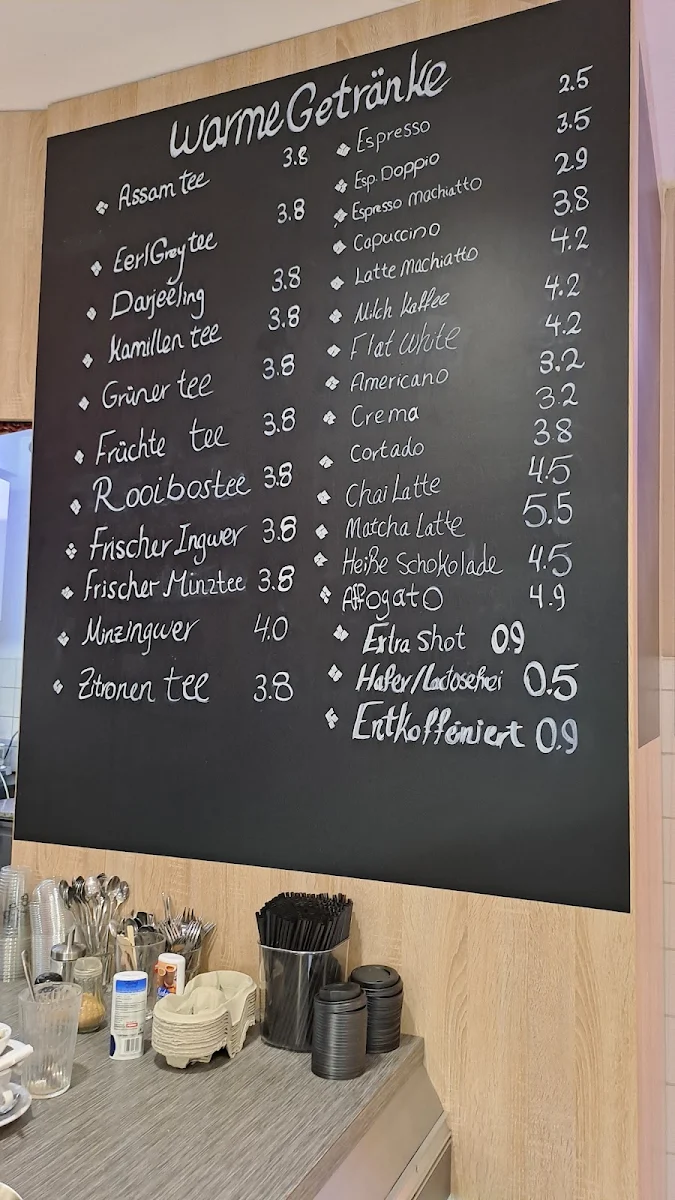 Warme Getränke
Assam tee 3.8
EerlGrey tee 3.8
Darjeeling 3.8
Kamillen tee 3.8
Grüner tee 3.8
Früchte tee 3.8
Rooibostee 3.8
Frischer Ingwer 3.8
Frischer Minztee 3.8
Minzingwer 4.0
Zitronen tee 3.8
Espresso 2.5
Esp. Doppio 3.5
Espresso Machiatto 2.9
Capuccino 3.8
Latte Machiatto 4.2
Milch Kaffee 4.2
Flat White 4.2
Americano 3.2
Crema 3.2
Cortado 3.8
Chai Latte 4.5
Matcha Latte 5.5
Heiße Schokolade 4.5
Affogato 4.9
Extra shot 0.9
Hafer/Lactosefrei 0.5
Entkoffeiniert 0.9